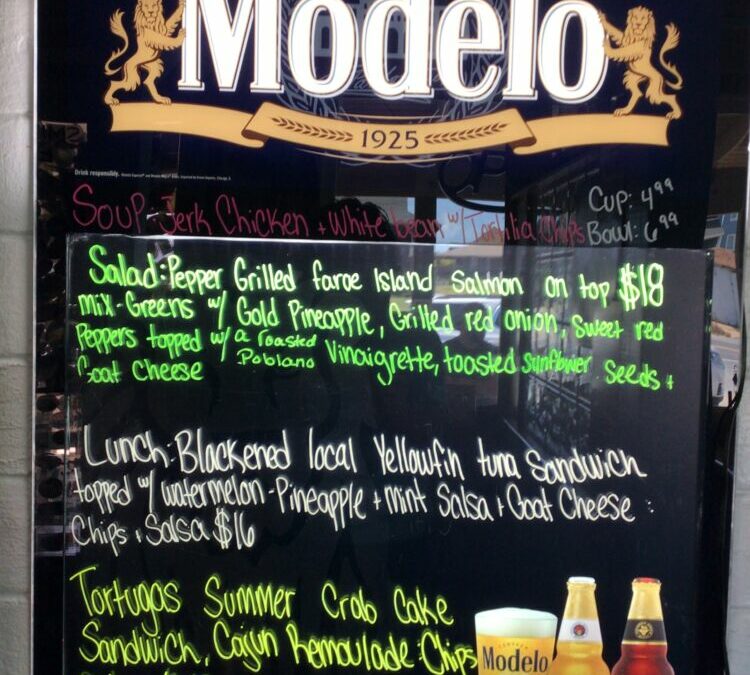 Modelo
1925
Drink responsibly.
Soup: Jerk Chicken + White bean w/ Tortilia Chips
Cup: 4.99
Bowl: 6.99
Salad: Pepper Grilled faroe Island Salmon on top $18
mix-Greens w/ Gold Pineapple, Grilled red onion, Sweet red
Peppers topped w/ a roasted Poblano Vinaigrette, toasted Sunflower Seeds +
Goat Cheese
Lunch: Blackened local Yellowfin tuna Sandwich
topped w/ watermelon-Pineapple + mint Salsa + Goat Cheese
Chips + Salsa $16
Tortugas Summer Crab Cake
Sandwich, Cajun Remoulade Chips
Modelo